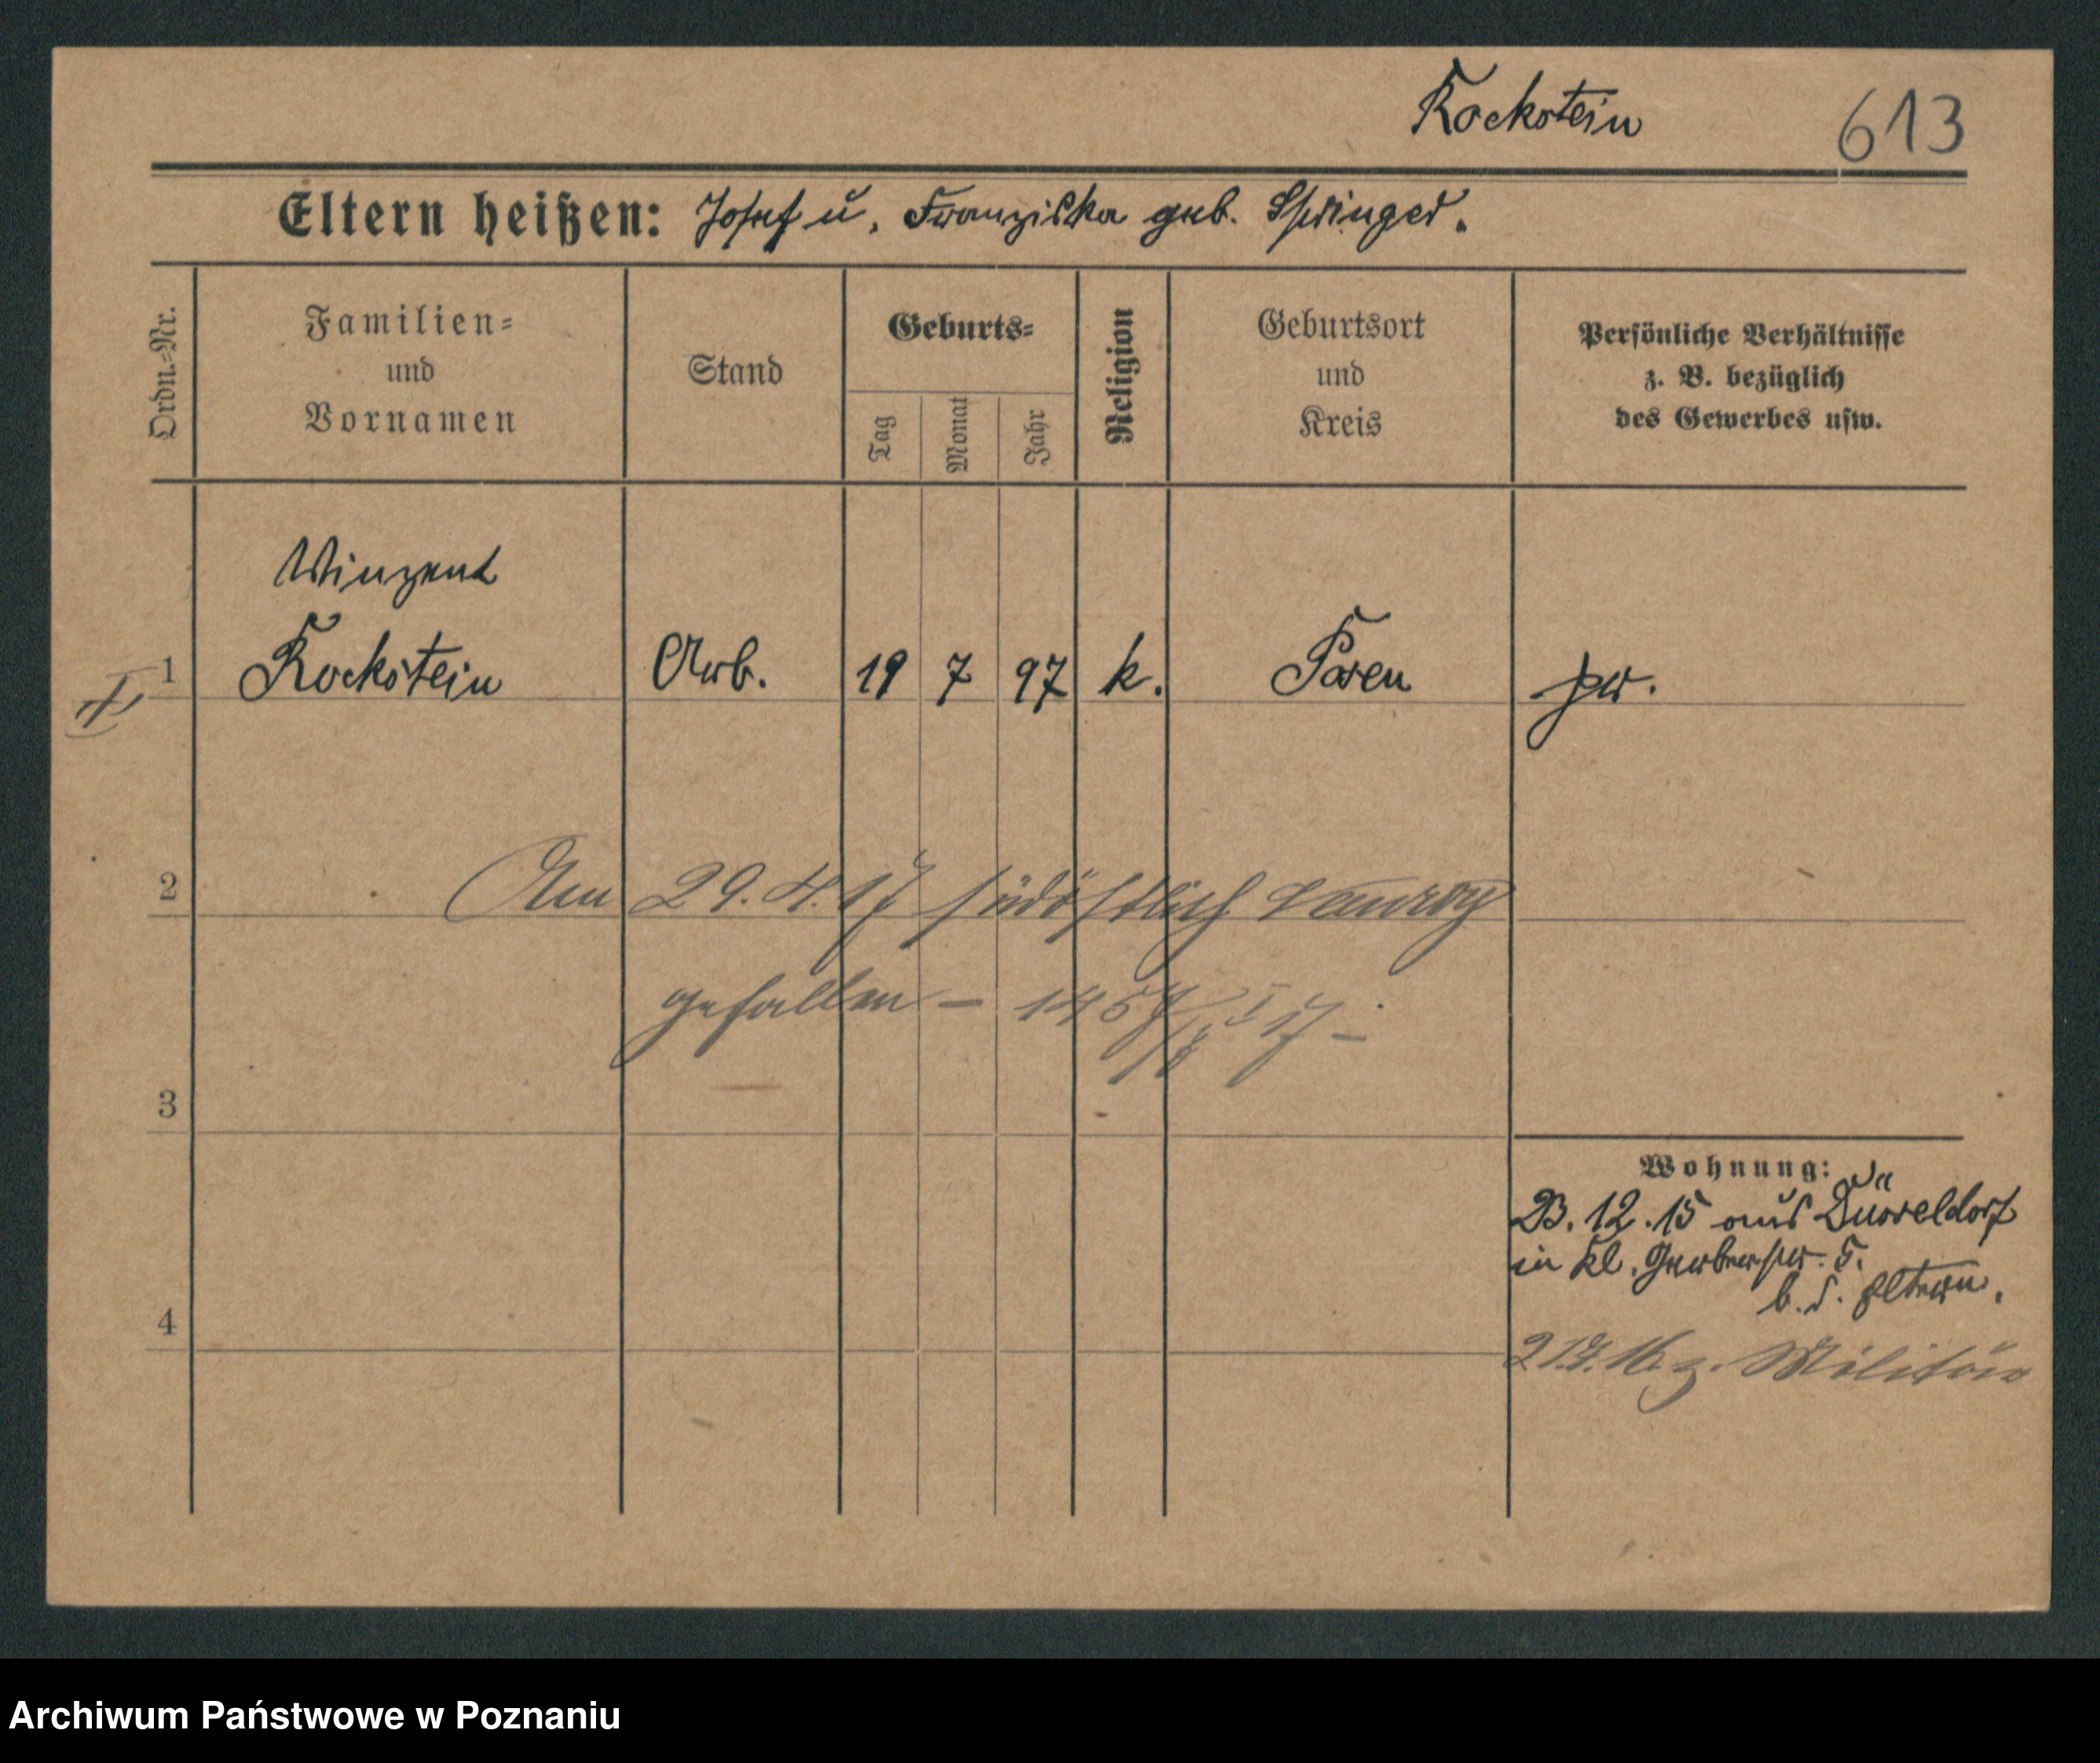 Rockstein 613
Eltern heißen: Josef u. Franziska geb. Springer.
Ordn.-Nr. Familien= und Vornamen Stand Geburts= Tag Monat Jahr Religion Geburtsort und Kreis Persönliche Verhältnisse z. B. bezüglich des Gewerbes usw.
Winzent
1 Rockstein Arb. 19 7 97 k. Posen pr.
2 Am 29.4.17 südöstlich
gefallen – 17 –
3
Wohnung:
23.12.15 aus Düsseldorf
in Kl. Gerberstr. 5.
b. d. Eltern.
4
z. Militär
Archiwum Państwowe w Poznaniu